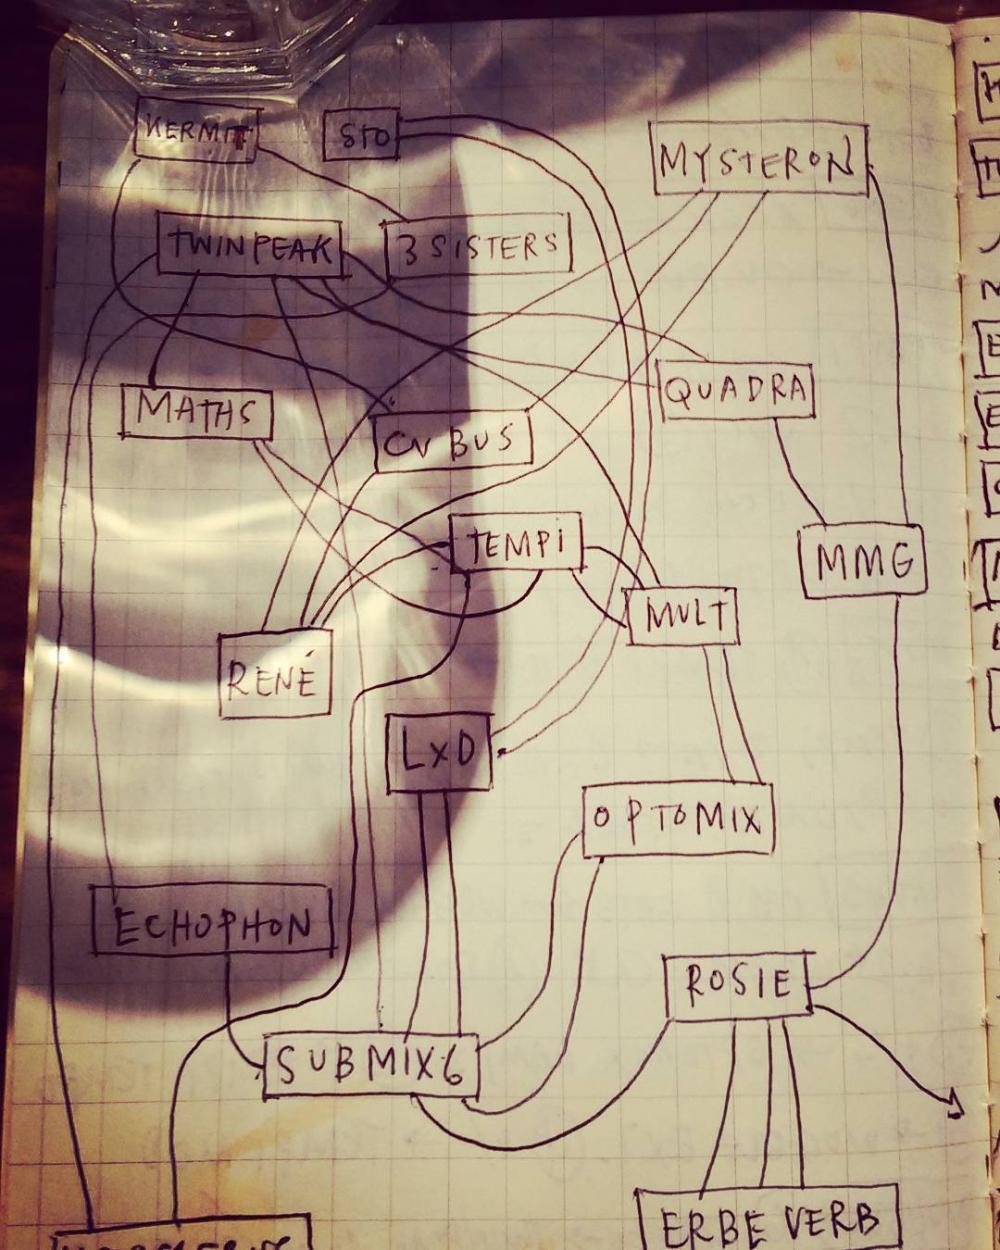 KERMIT
STO
MYSTERON
TWINPEAK
3 SISTERS
MATHS
CV BUS
QUADRA
TEMPI
MMG
MULT
RENÉ
LxD
OPTOMIX
ECHOPHON
ROSIE
SUBMIX6
ERBE VERB